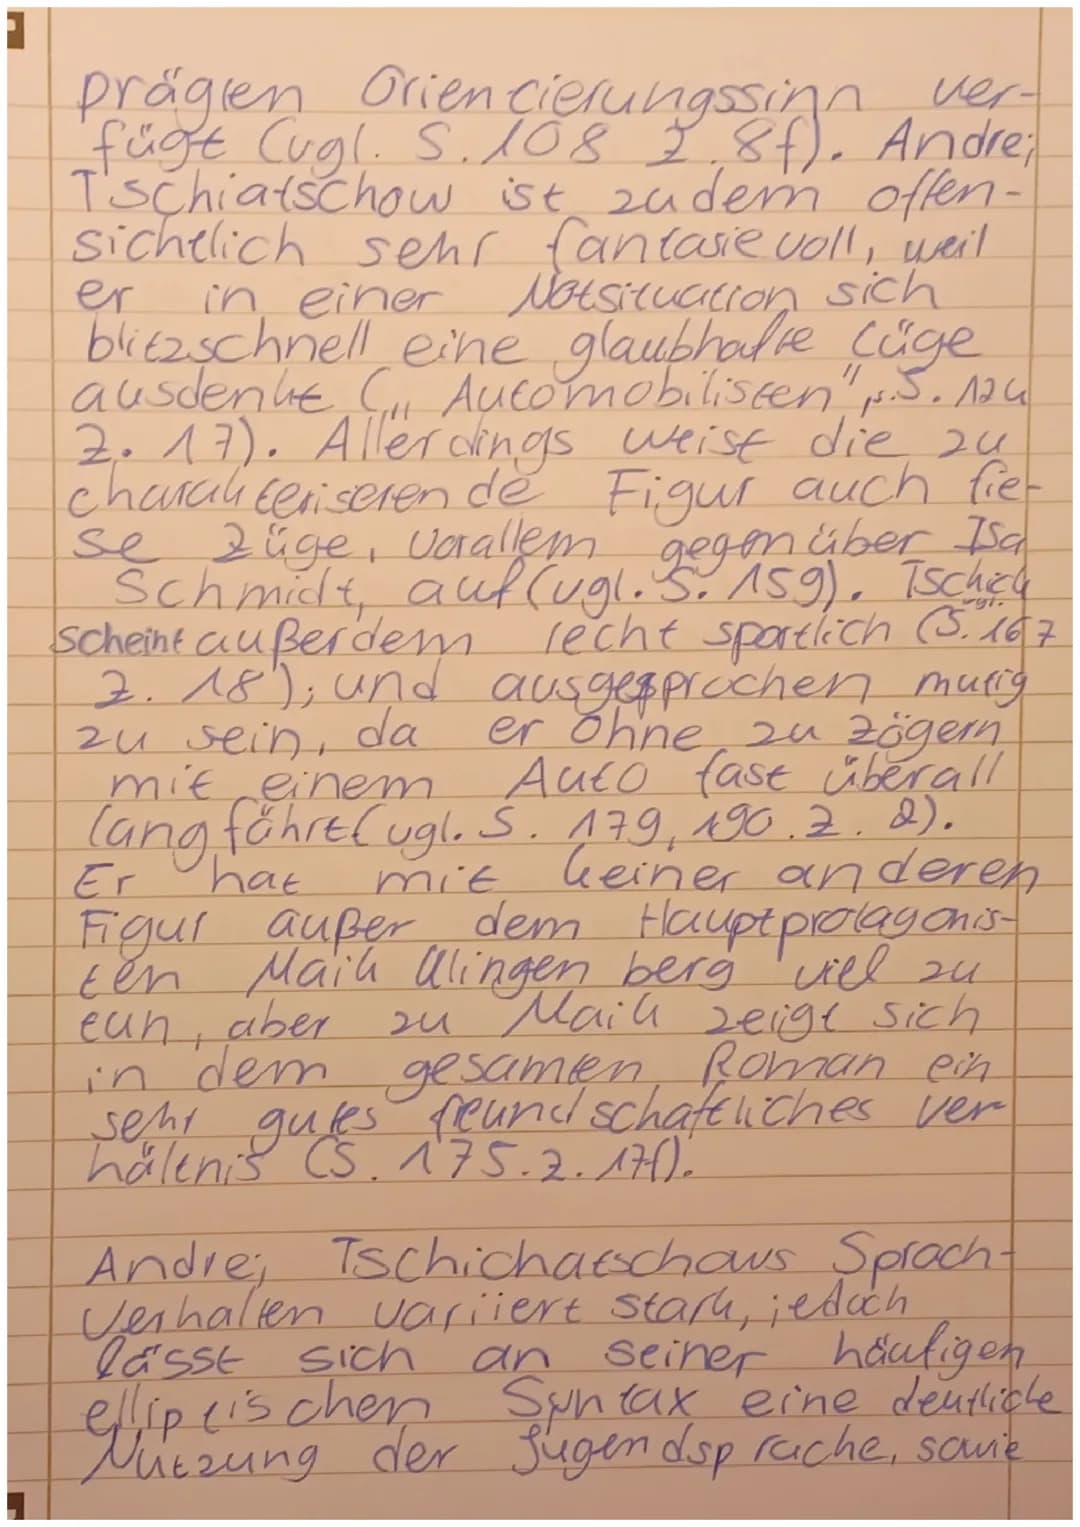 prägten Orientierungssinn ver-
fügt (vgl. S. 108 Z. 8f). Andrej
Tschiatschow ist zudem offen-
sichtlich sehr fantasievoll, weil
er in einer Notsituation sich
blitzschnell eine glaubhafte Lüge
ausdenkt („Automobilisten", S. 124
Z. 17). Allerdings weist die zu
charakteriserende Figur auch fie-
se Züge, vorallem gegenüber Isa
Schmidt, auf (vgl. S. 159). Tschick
scheint außerdem recht sportlich (vgl. S. 167
Z. 18), und ausgesprochen mutig
zu sein, da er ohne zu zögern
mit einem Auto fast überall
langfährt (vgl. S. 179, 190. Z. 2).
Er hat mit keiner anderen
Figur außer dem Hauptprotagonis-
ten Maik Klingenberg viel zu
tun, aber zu Maik zeigt sich
in dem gesamten Roman ein
sehr gutes freundschaftliches ver
hältnis (S. 175. Z. 17f).
Andrej Tschichatschows Sprach-
verhalten variiert stark, jedoch
lässt sich an seiner häufigen
elliptischen Syntax eine deutliche
Nutzung der Jugendsprache, sowie